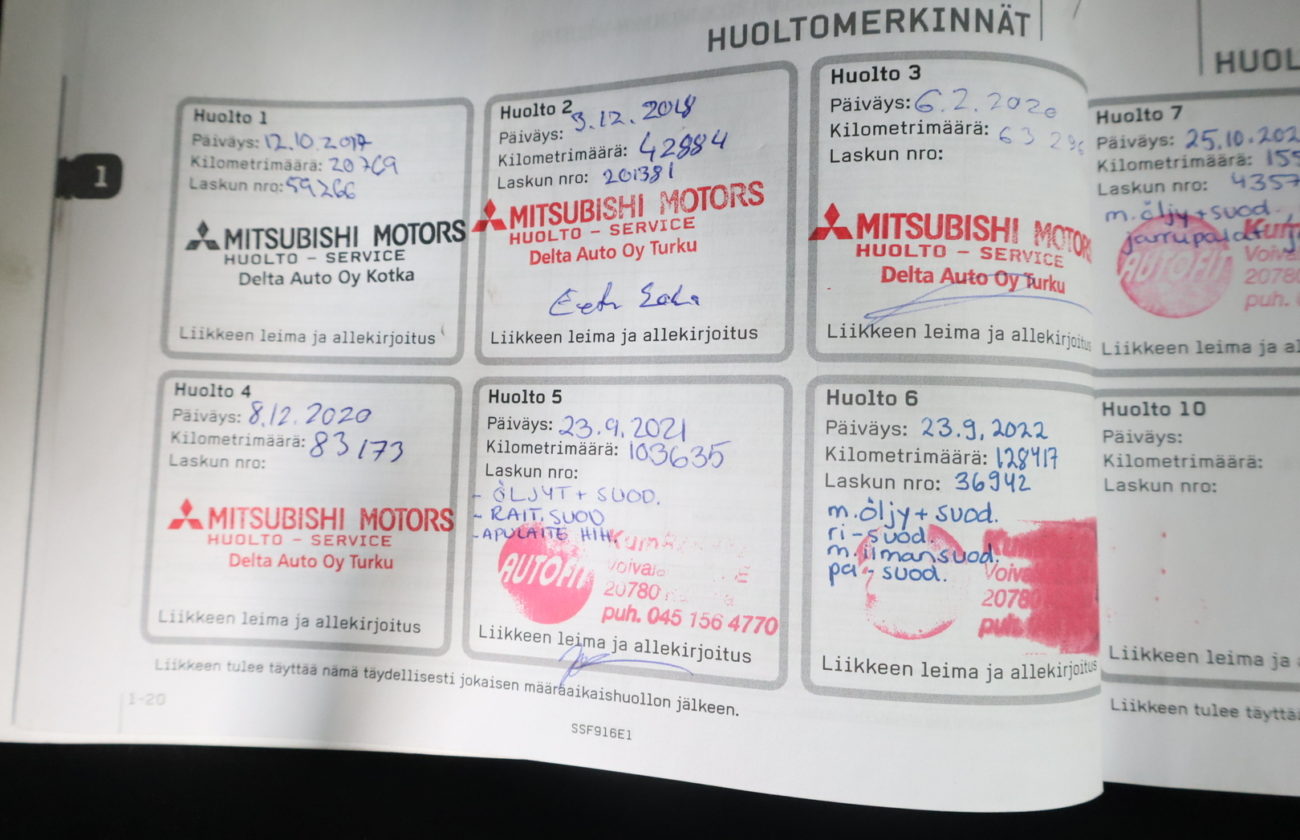 HUOLTOMERKINNÄT
1
Huolto 1
Päiväys: 12.10.2017
Kilometrimäärä: 20769
Laskun nro: 59266
MITSUBISHI MOTORS
HUOLTO - SERVICE
Delta Auto Oy Kotka
Liikkeen leima ja allekirjoitus
Huolto 2
Päiväys: 3.12.2018
Kilometrimäärä: 42884
Laskun nro: 201381
MITSUBISHI MOTORS
HUOLTO - SERVICE
Delta Auto Oy Turku
Liikkeen leima ja allekirjoitus
Huolto 3
Päiväys: 6.2.2020
Kilometrimäärä:
Laskun nro:
MITSUBISHI MOTORS
HUOLTO - SERVICE
Delta Auto Oy Turku
Liikkeen leima ja allekirjoitus
Huolto 4
Päiväys: 8.12.2020
Kilometrimäärä: 83173
Laskun nro:
MITSUBISHI MOTORS
HUOLTO - SERVICE
Delta Auto Oy Turku
Liikkeen leima ja allekirjoitus
Huolto 5
Päiväys: 23.9.2021
Kilometrimäärä: 103635
Laskun nro:
- ÖLJYT + SUOD.
- RAIT. SUOD
- APULAITE HIHN
AUTOFIT
20780
puh. 045 156 4770
Liikkeen leima ja allekirjoitus
Huolto 6
Päiväys: 23.9.2022
Kilometrimäärä: 128417
Laskun nro: 36942
m.öljy + suod.
ri-suod.
m.ilmansuod.
pa-suod.
20780
puh.
Liikkeen leima ja allekirjoitus
Liikkeen tulee täyttää nämä täydellisesti jokaisen määräaikaishuollon jälkeen.
1-20
SSF916E1
HUOL
Huolto 7
Päiväys: 25.10.202
Kilometrimäärä: 155
Laskun nro: 4357
m.öljy + suod.,
jarrupalat
AUTOFIT
20780
puh.
Liikkeen leima ja al
Huolto 10
Päiväys:
Kilometrimäärä:
Laskun nro:
Liikkeen leima ja
Liikkeen tulee täyttä